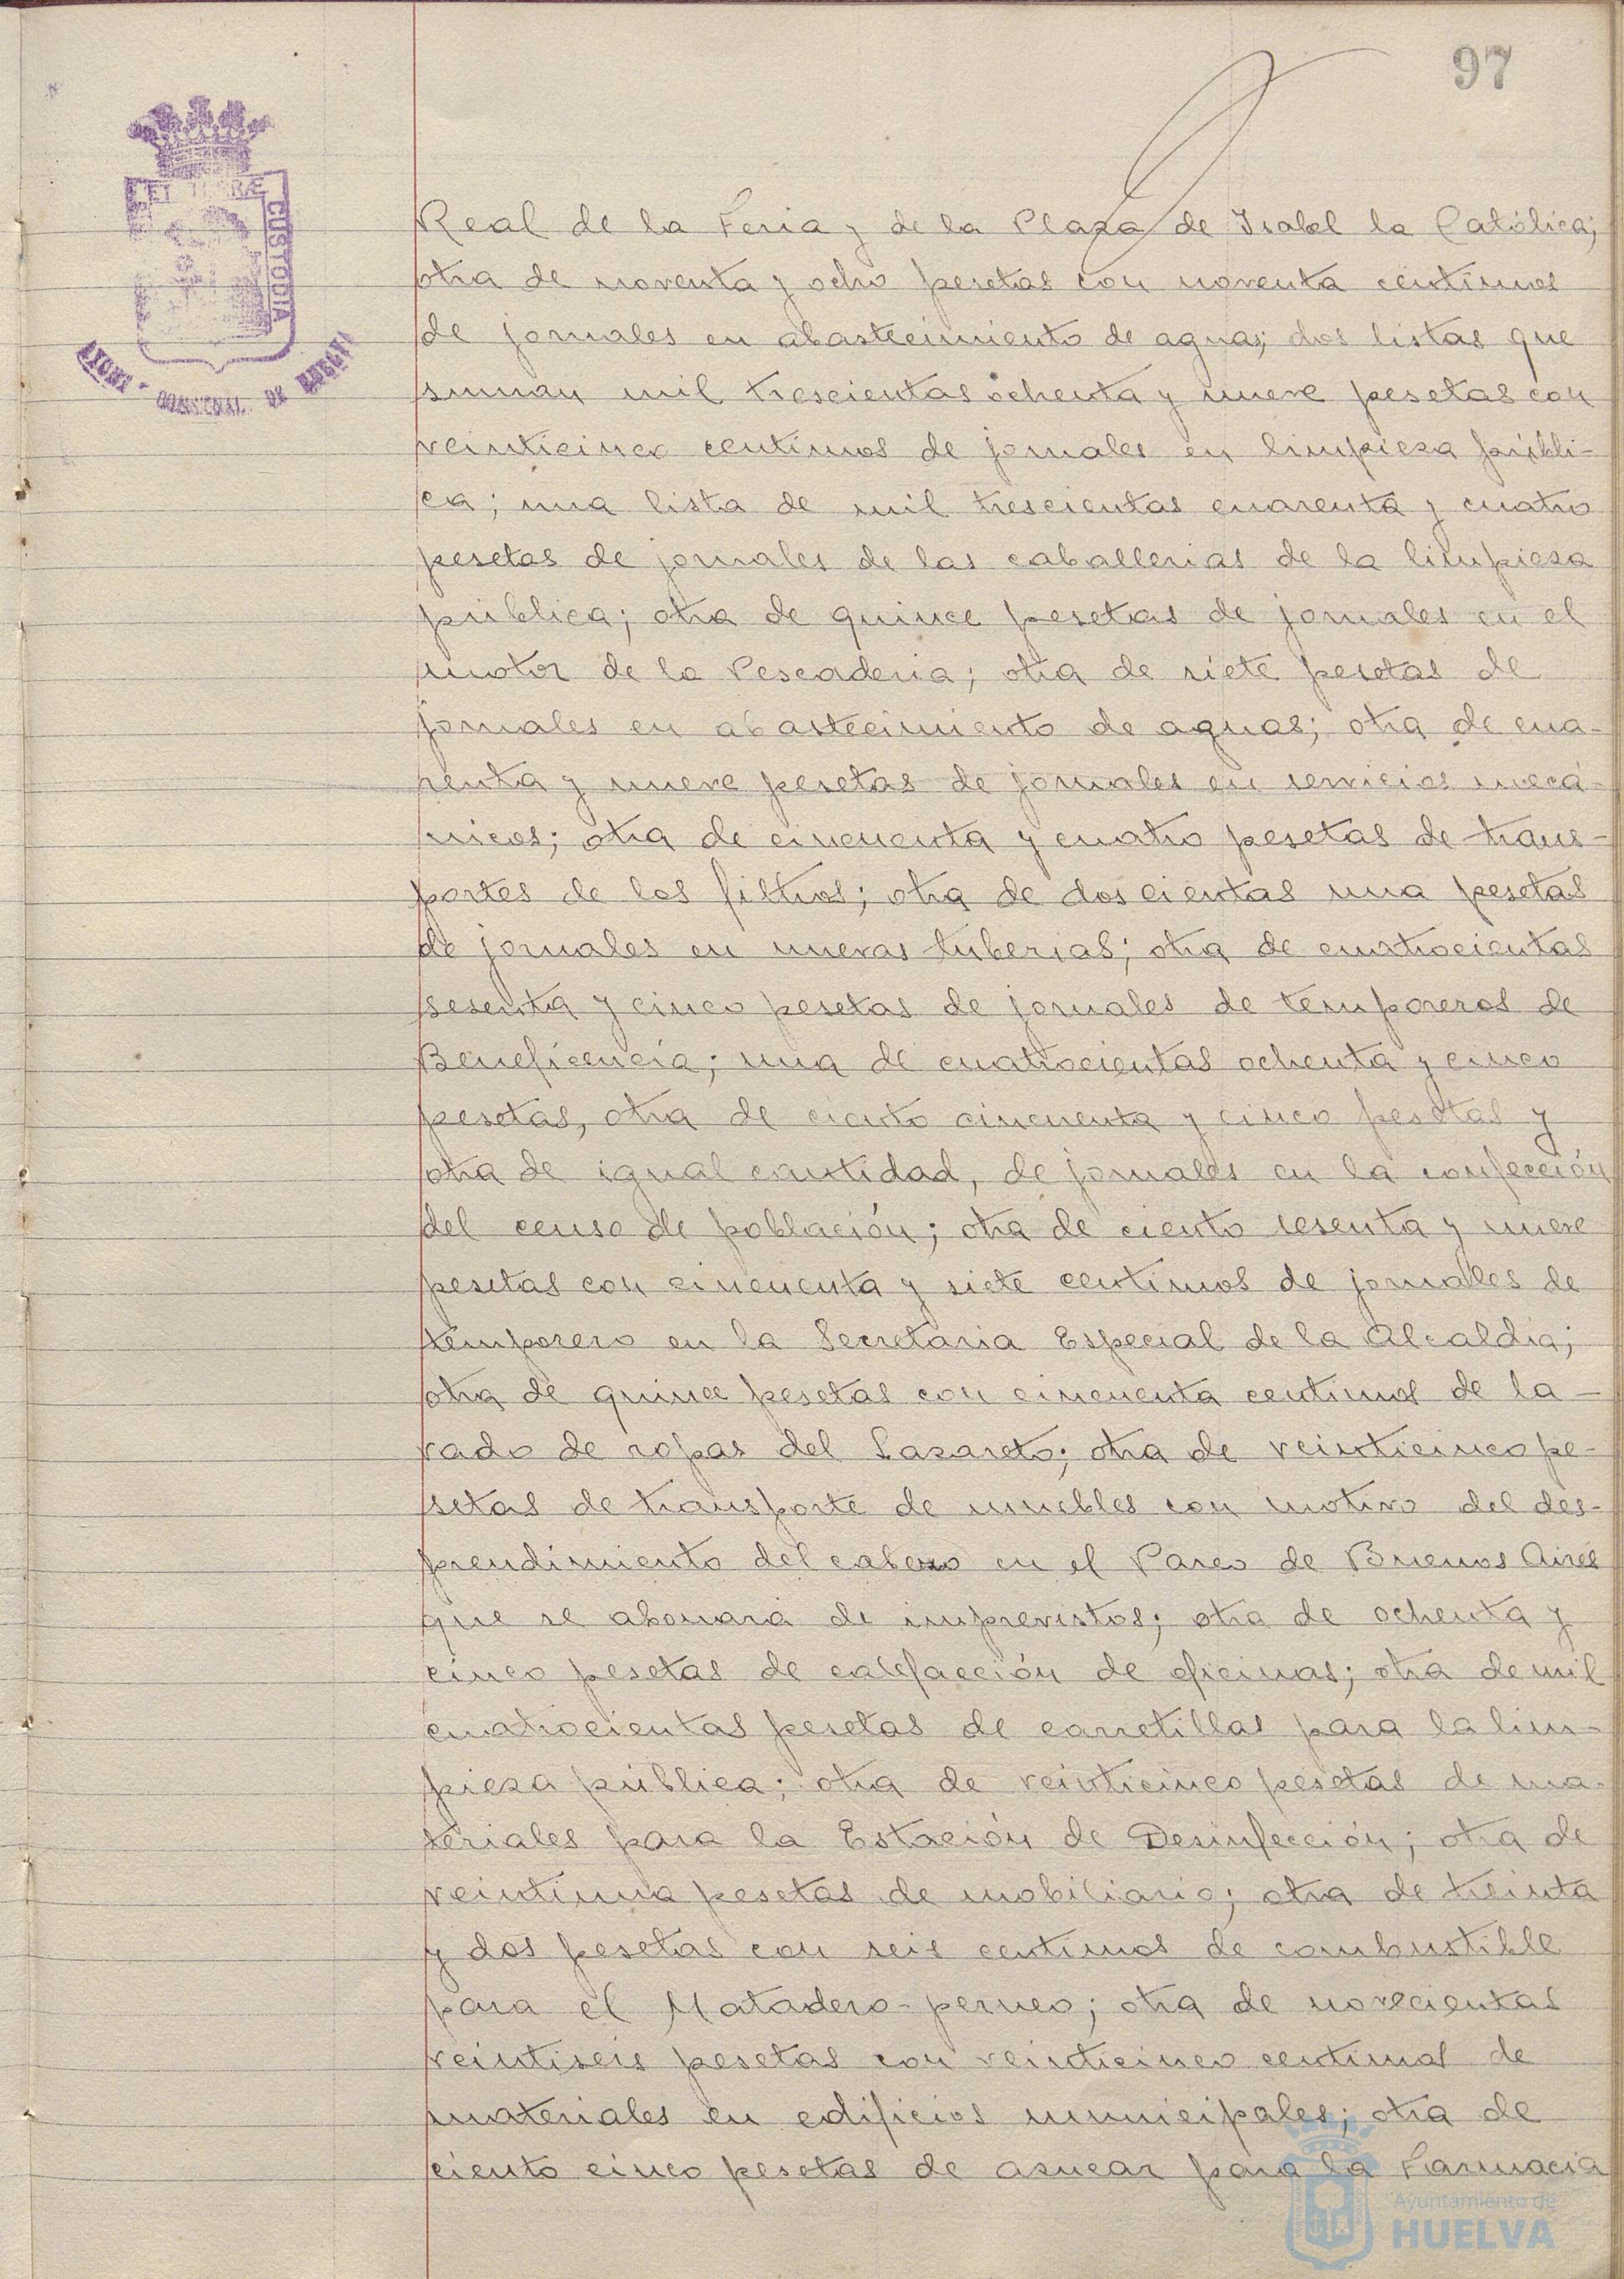 97
ET TERRÆ
CUSTODIA
Real de la Feria y de la Plaza de Isabel la Católica;
otra de noventa y ocho pesetas con noventa centimos
de jornales en abastecimiento de aguas; dos listas que
suman mil trescientas ochenta y nueve pesetas con
veinticinco centimos de jornales en limpieza públi-
ca; una lista de mil trescientas cuarenta y cuatro
pesetas de jornales de las caballerias de la limpieza
pública; otra de quince pesetas de jornales en el
motor de la Pescaderia; otra de siete pesetas de
jornales en abastecimiento de aguas; otra de cua-
renta y nueve pesetas de jornales en servicios mecá-
nicos; otra de cincuenta y cuatro pesetas de trans-
portes de los filtros; otra de doscientas una pesetas
de jornales en nuevas tuberias; otra de cuatrocientas
sesenta y cinco pesetas de jornales de temporeros de
Beneficencia; una de cuatrocientas ochenta y cinco
pesetas, otra de ciento cincuenta y cinco pesetas y
otra de igual cantidad, de jornales en la confección
del censo de población; otra de ciento sesenta y nueve
pesetas con cincuenta y siete centimos de jornales de
temporero en la Secretaria Especial de la Alcaldia;
otra de quince pesetas con cincuenta centimos de la-
vado de ropas del Lazareto; otra de veinticinco pe-
setas de transporte de muebles con motivo del des-
prendimiento del cabezo en el Paseo de Buenos Aires
que se abonará de imprevistos; otra de ochenta y
cinco pesetas de calefacción de oficinas; otra de mil
cuatrocientas pesetas de carretillas para la lim-
pieza pública; otra de veinticinco pesetas de ma-
teriales para la Estación de Desinfección; otra de
veintiuna pesetas de mobiliario; otra de treinta
y dos pesetas con seis centimos de combustible
para el Matadero-perneo; otra de novecientas
veintiseis pesetas con veinticinco centimos de
materiales en edificios municipales; otra de
ciento cinco pesetas de azucar para la Farmacia
Ayuntamiento de
HUELVA